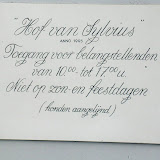 "Hof van Sylerius"
ANNO 1905
Toegang voor belangstellenden
van 10.00 tot 17.00 u.
Niet op zon- en feestdagen
(honden aangelijnd)